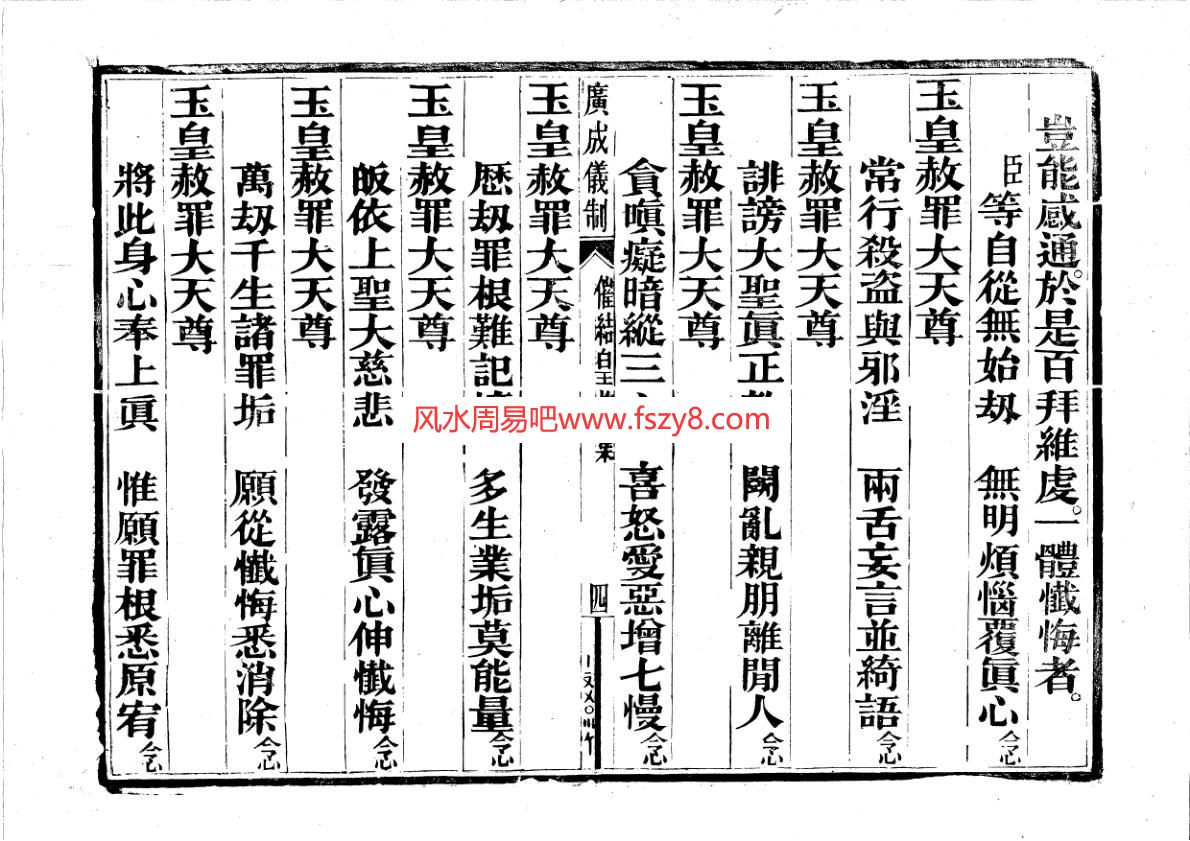 豈能感通。於是百拜維虔。一體懺悔者。
臣等自從無始劫　無明煩惱覆眞心念
玉皇赦罪大天尊
常行殺盜與邪淫　兩舌妄言並綺語念
玉皇赦罪大天尊
誹謗大聖眞正　鬬亂親朋離間人念
玉皇赦罪大天尊
貪嗔癡暗縱三　喜怒愛惡增七慢念
廣成儀制　四
玉皇赦罪大天尊
歷劫罪根難記　多生業垢莫能量念
玉皇赦罪大天尊
皈依上聖大慈悲　發露眞心伸懺悔念
玉皇赦罪大天尊
萬劫千生諸罪垢　願從懺悔悉消除念
玉皇赦罪大天尊
將此身心奉上眞　惟願罪根悉原宥念
风水周易吧www.fszy8.com